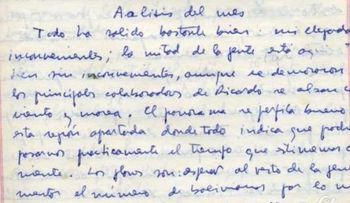 Análisis del mes
Todo ha salido bastante bien: mi llegada
inconvenientes; la mitad de la gente está aquí
bien sin inconvenientes, aunque se demoraron
los principales colaboradores de Ricardo se alzan c
viento y marea. El panorama se perfila bueno
esta región apartada donde todo indica que podr
pasarnos practicamente el tiempo que estimemos c
mente. Los planes son: esperar al resto de la gen
mentar el número de bolivianos por lo m